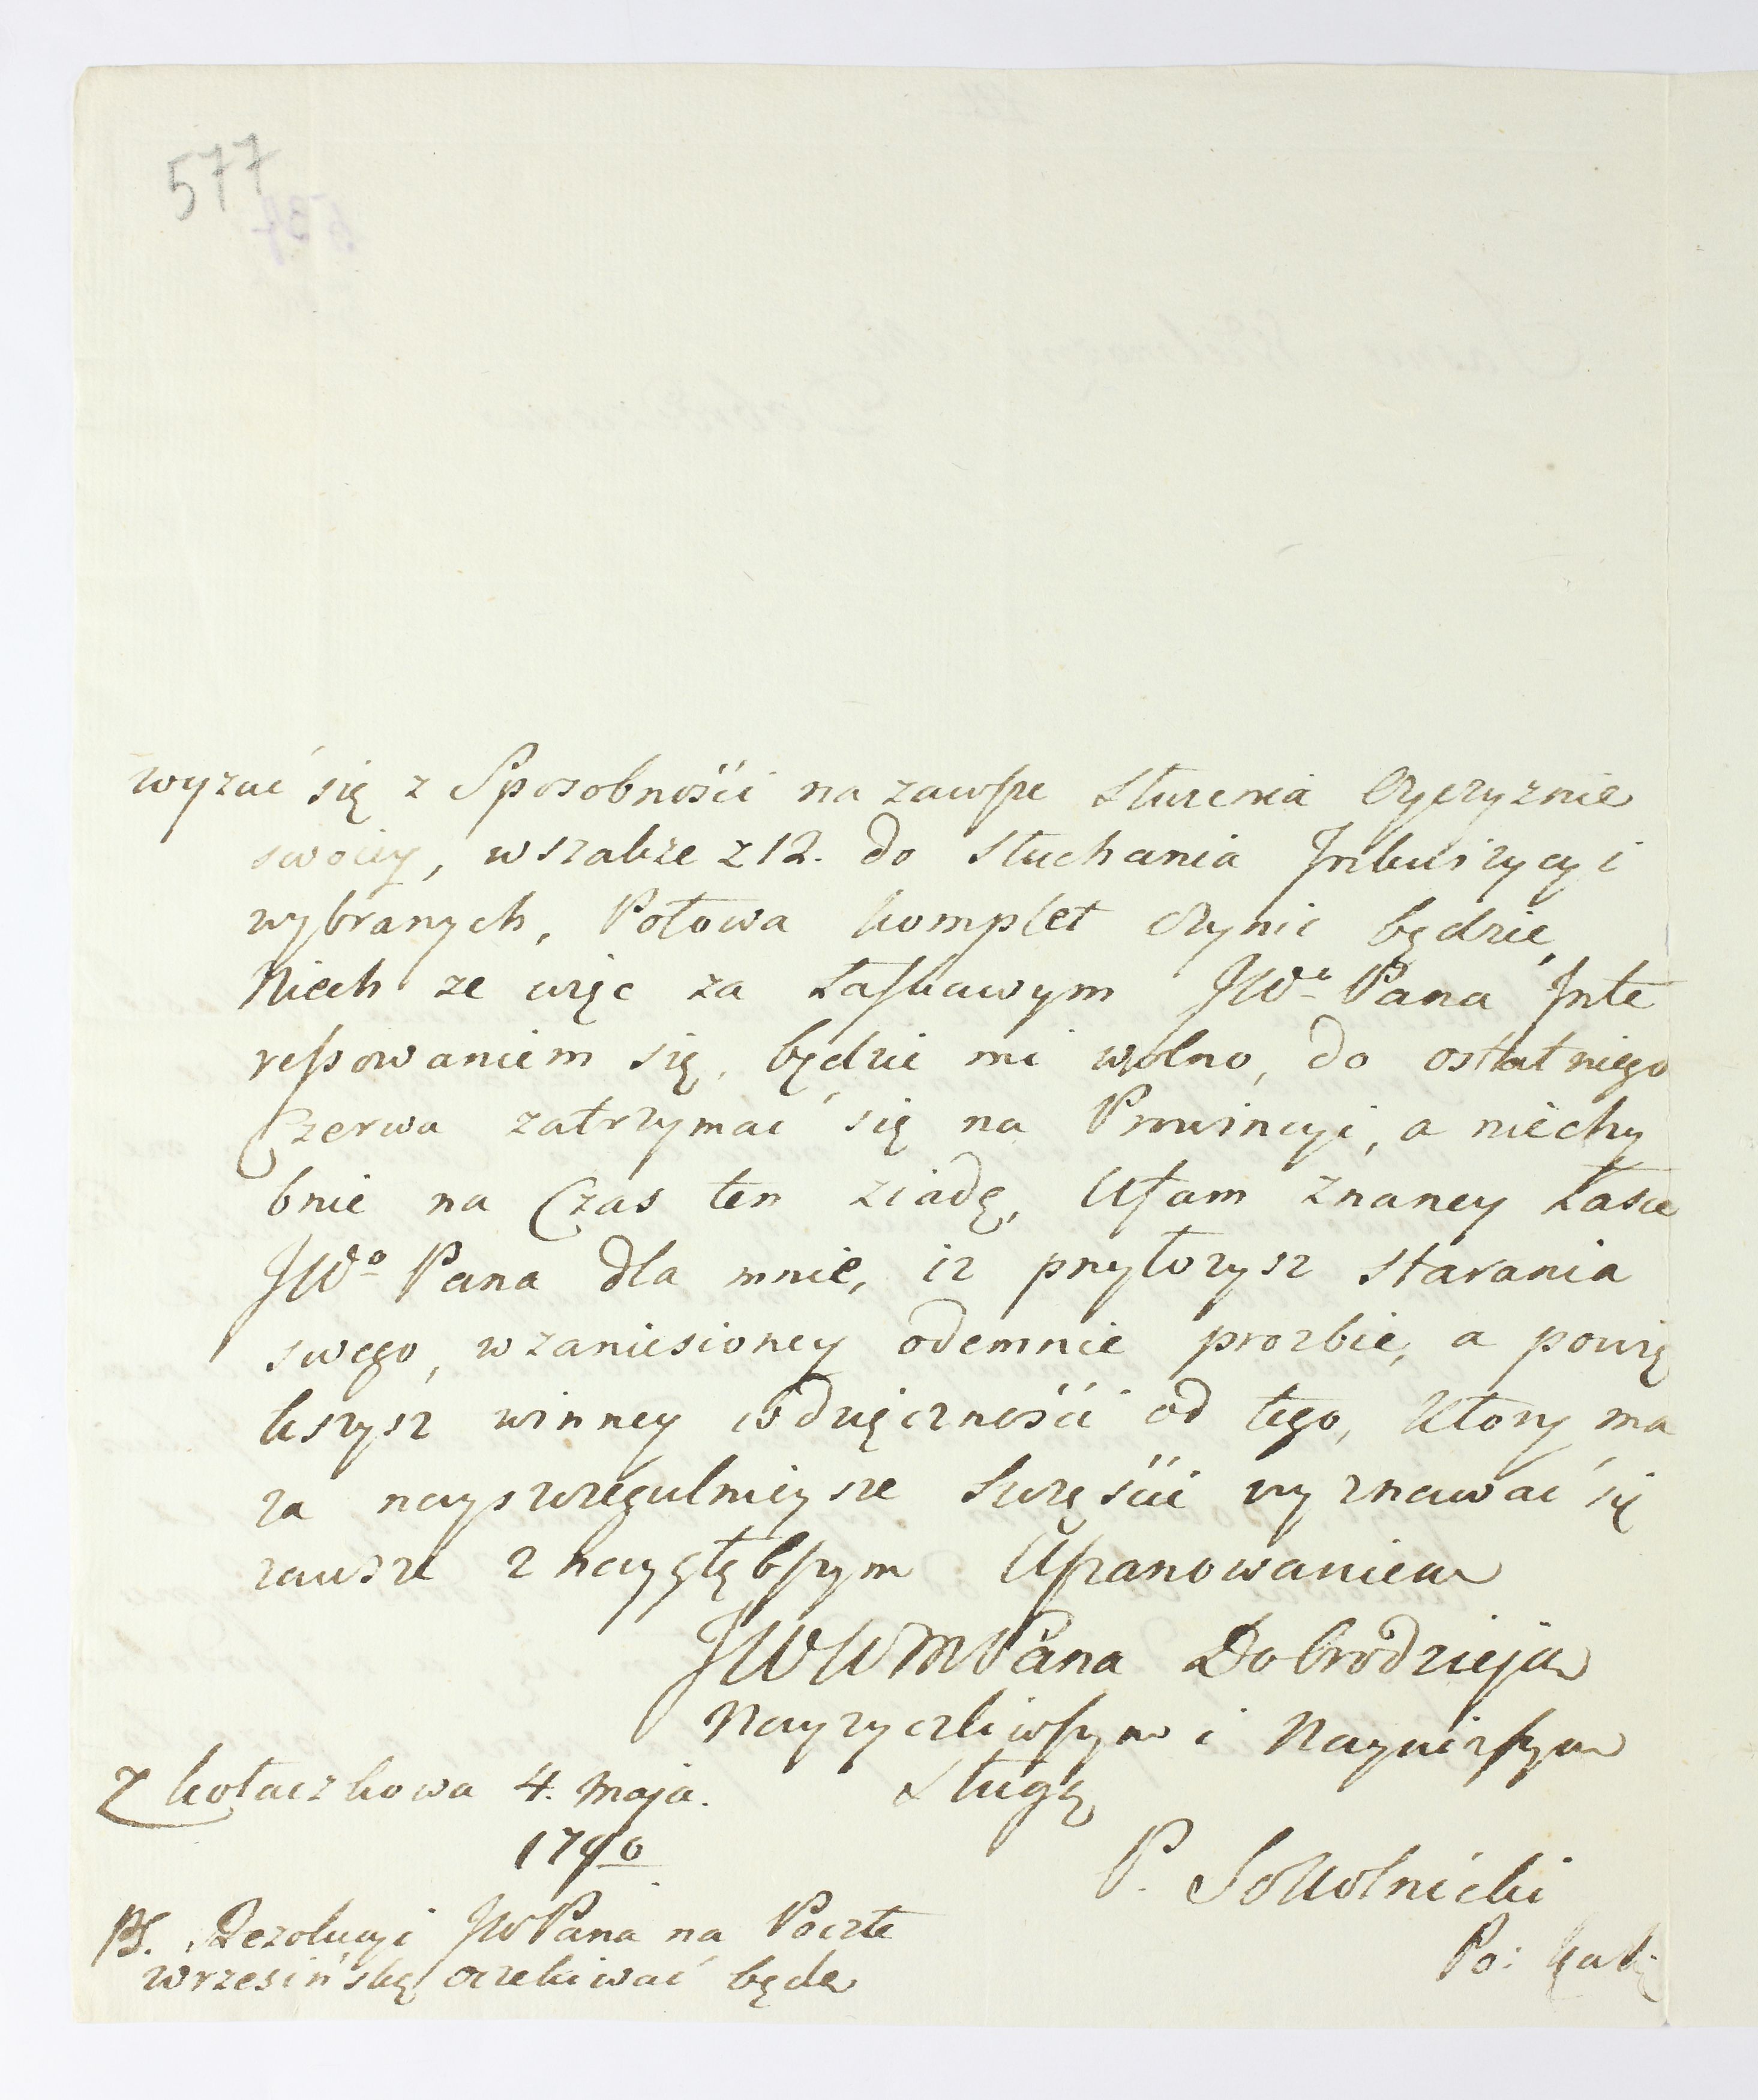 577
wyzać się z Sposobności na zawsze Służenia Oyczyznie
swoiey, wszakże z 12. do słuchania Inkwizycyi
wybranych, Połowa komplet czynić będzie,
Niech ze więc za Łaskawym JWo Pana Inte
ressowaniem się, będzie mi wolno, do ostatniego
Czerwa zatrzymać się na Prowincyi, a niechy
bnie na Czas ten ziadę, Ufam znaney Łasce
JWo Pana dla mnie, iz przyłozysz starania
swego, w zaniesioney odemnie prozbie, a powię
kszysz winney wdzięczności od tego, ktory ma
za nayszczegulnieysze Szczęście wyznawać się
zawsze z naygłębszym Uszanowaniem
JWWMPana Dobrodzieja
Nayzyczliwszym i Nayniższym
Sługą
Z Kołaczkowa 4. Maja.
1790
P. Sokolnicki
PS. Rezolucyi JWPana na Poczte
wrzesińską oczekiwać będę
Po: